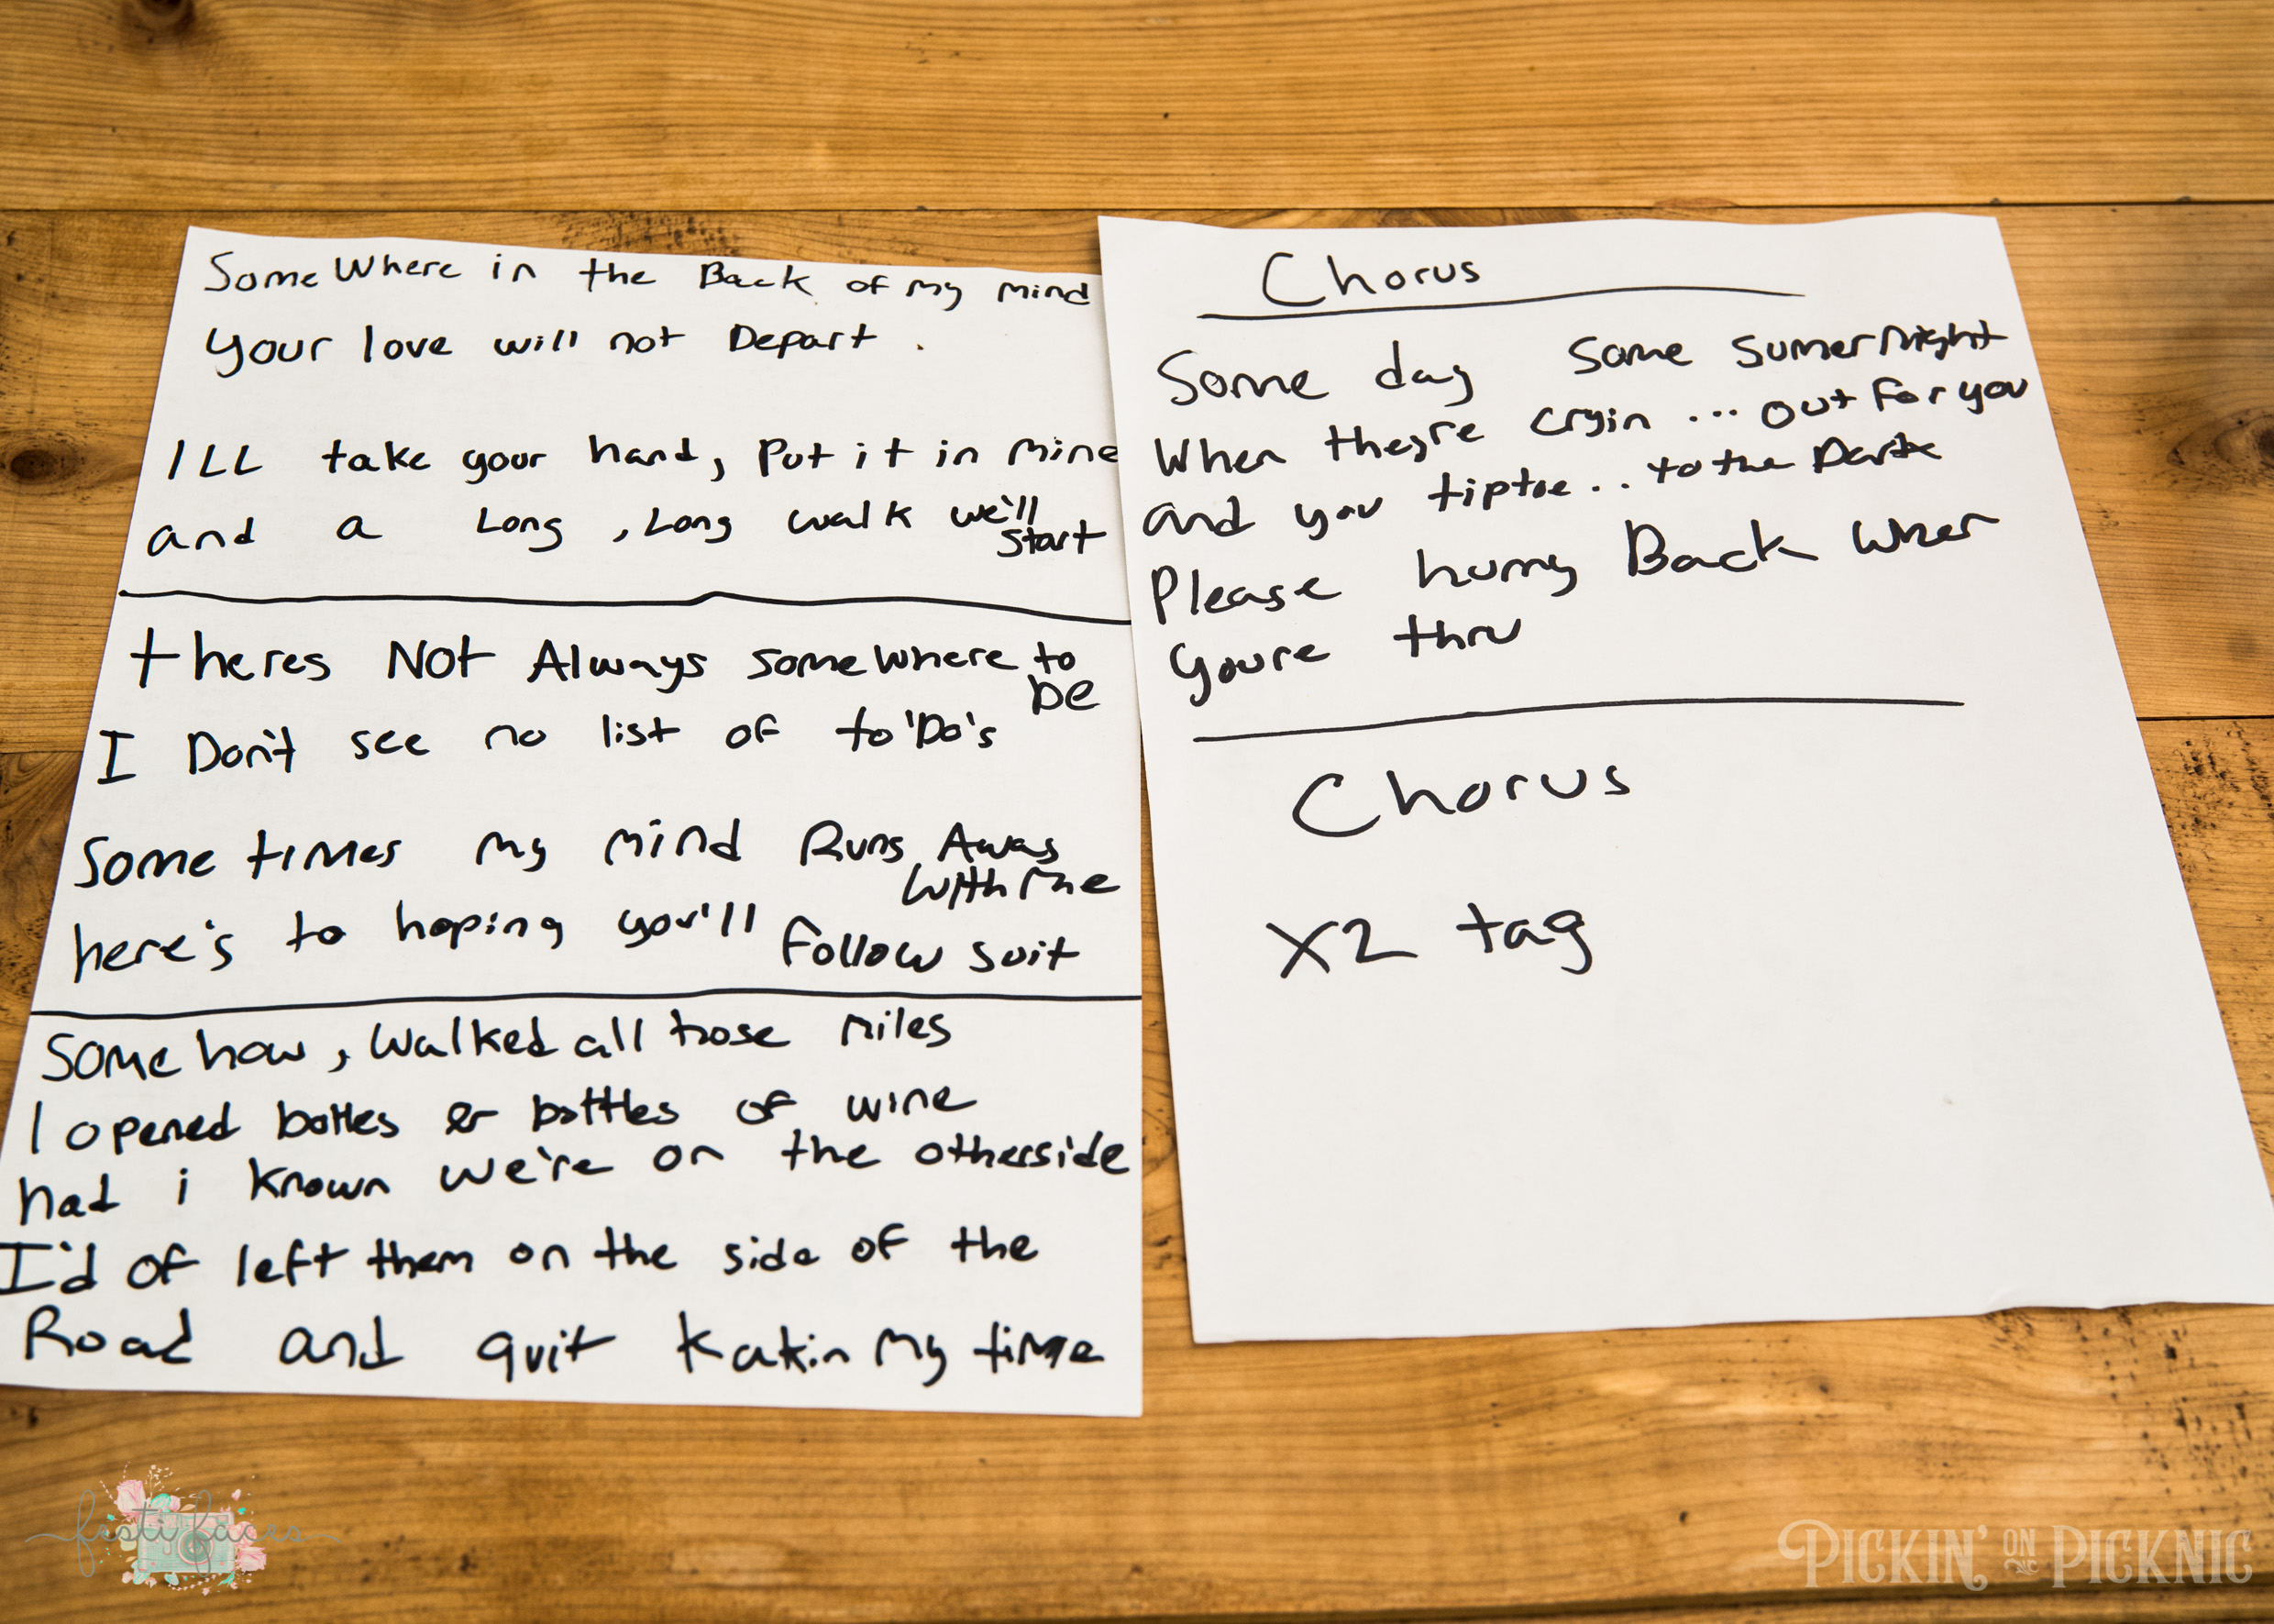 SomeWhere in the Back of my mind
your love will not Depart.
ILL take your hand, Put it in mine
and a Long, Long walk we'll
start
theres NOt Always somewhere to
be
I Don't see no list of to 'Do's
Some times my mind Runs Away
with me
here's to hoping you'll follow suit
Some how, Walked all those miles
I opened bottles & bottles of wine
had i known we're on the otherside
I'd of left them on the side of the
Road and quit takin my time
Chorus
Some day Some sumer Night
When theyre cryin ... out for you
and you tiptoe .. to the Dark
Please hurry Back when
youre thru
Chorus
X2 tag
festi faces
PICKIN' ON PICKNIC